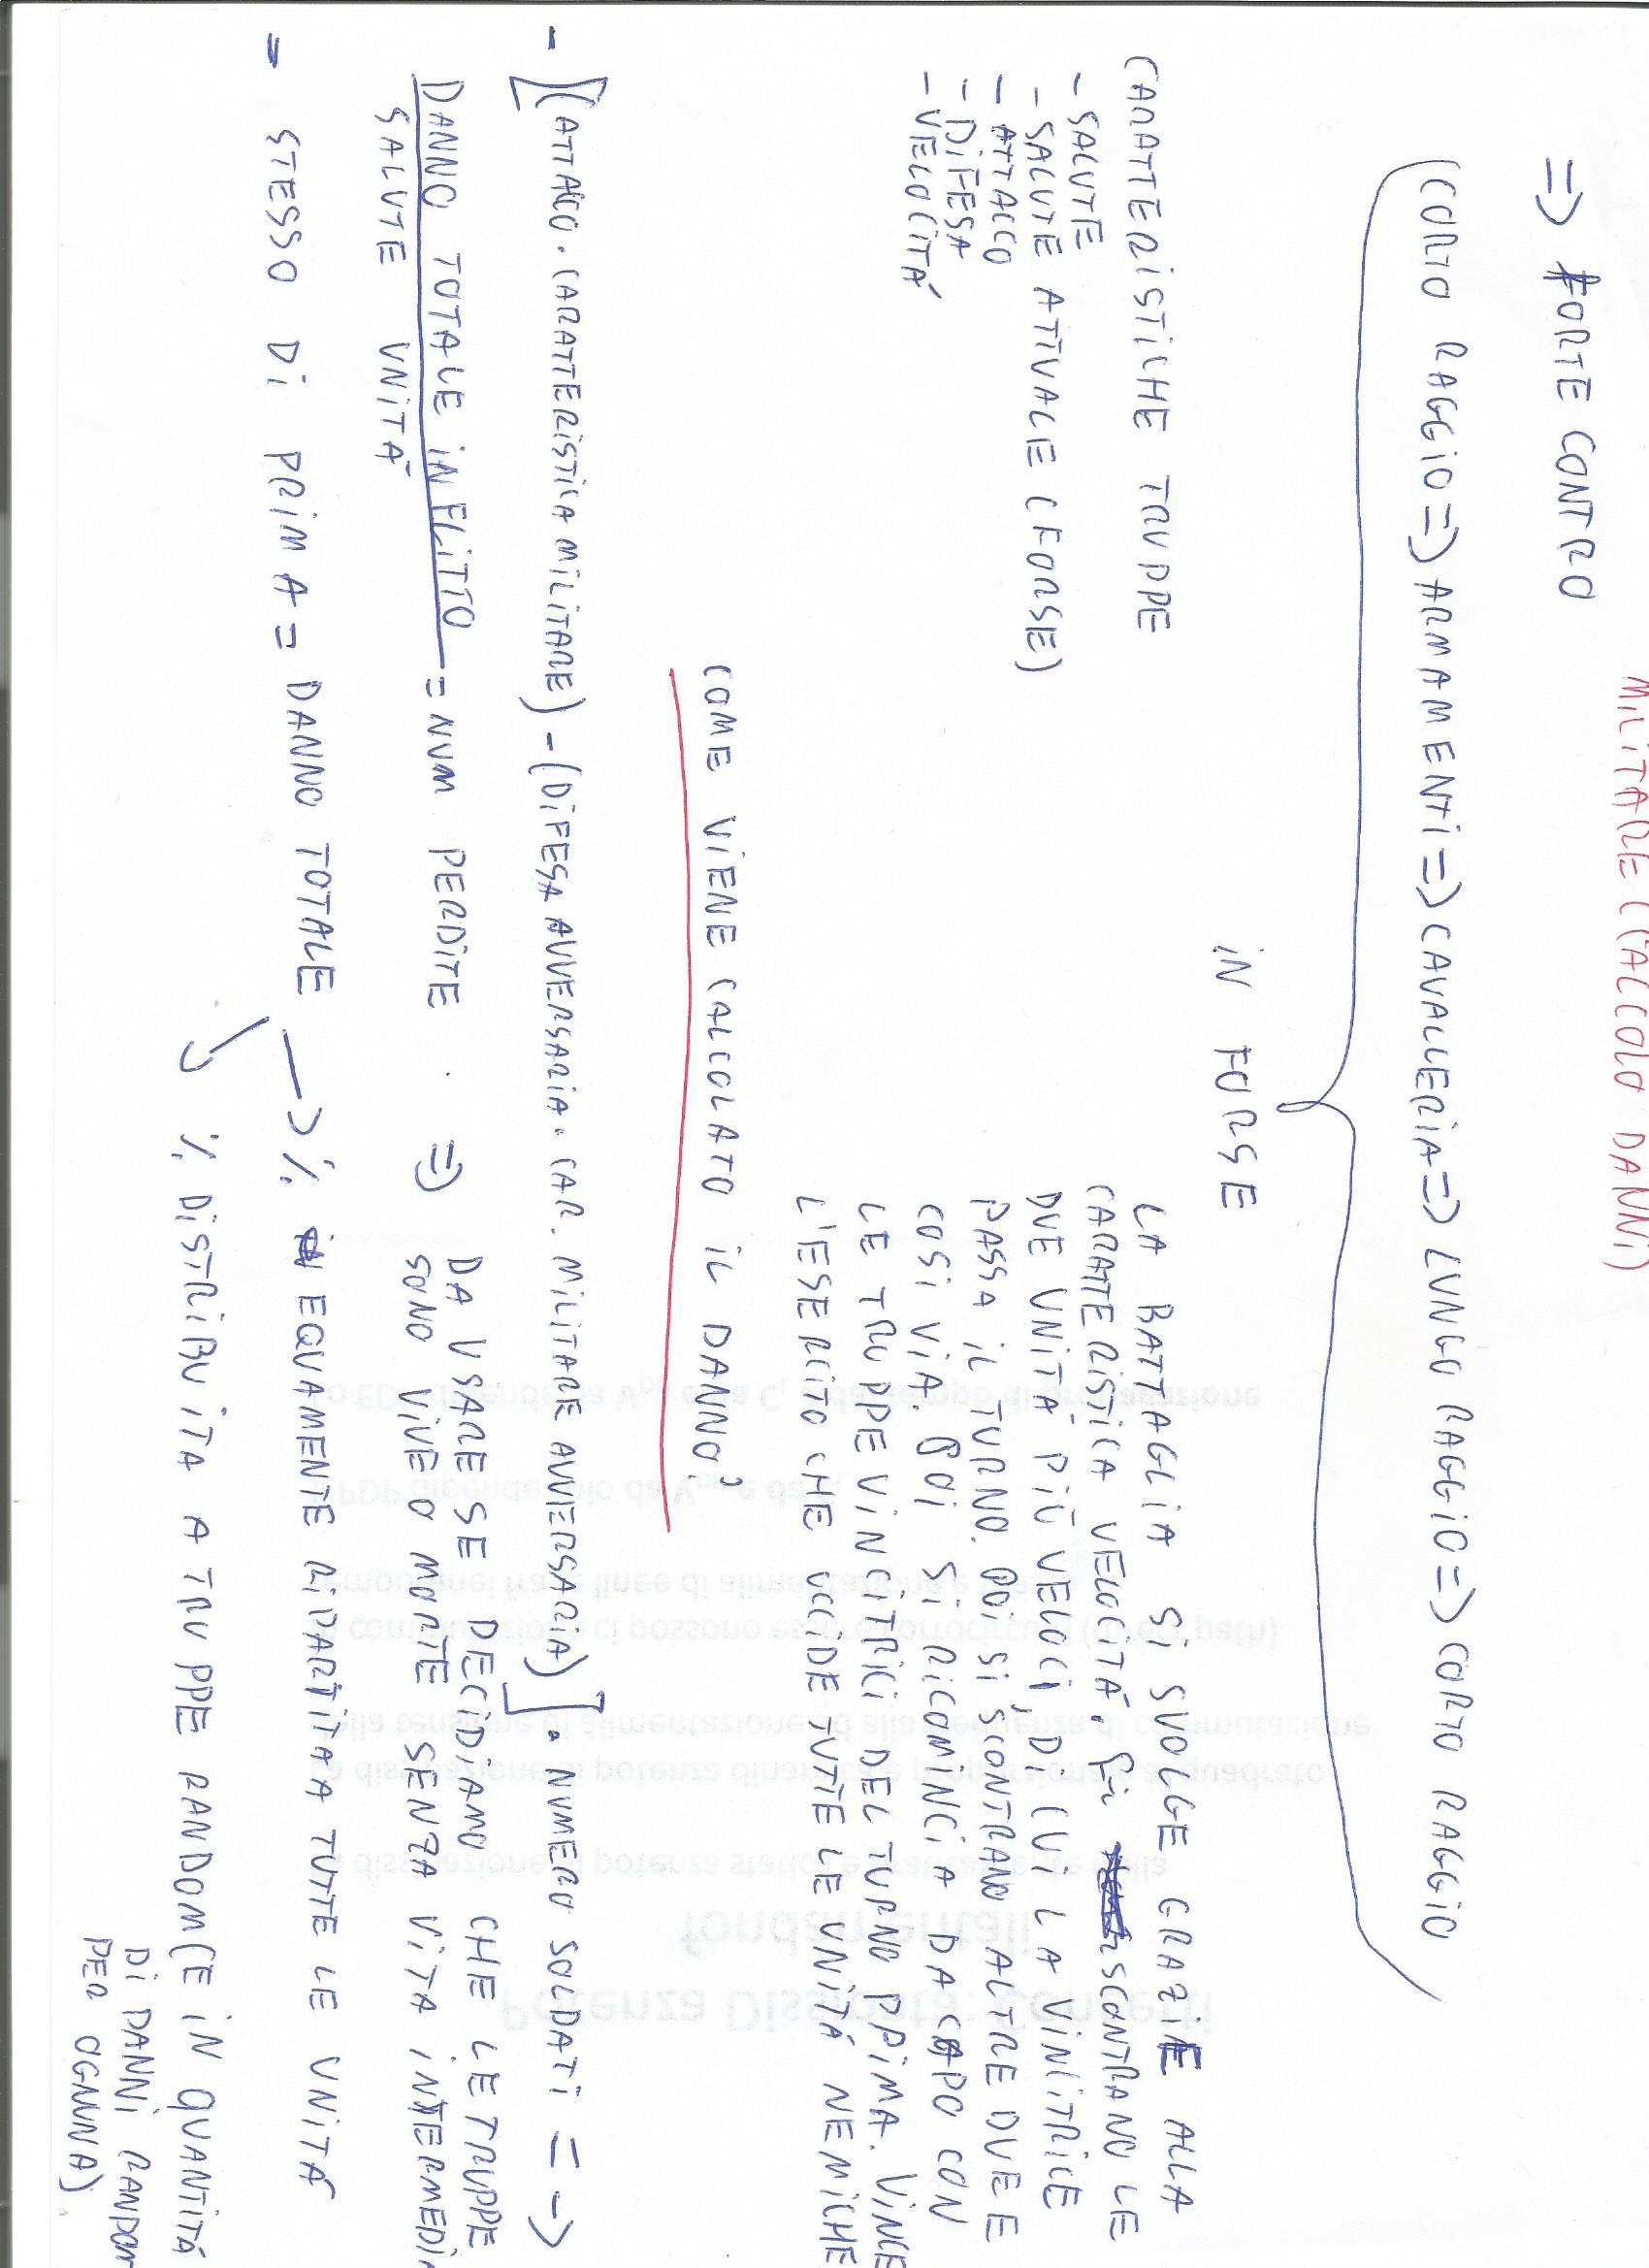 MILITARE (CALCOLO DANNI)
=> FORTE CONTRO
(CORTO RAGGIO => ARMAMENTI => CAVALLERIA => LUNGO RAGGIO => CORTO RAGGIO
IN FORSE
CARATTERISTICHE TRUPPE
- SALUTE
- SALUTE ATTUALE (FORSE)
- ATTACCO
- DIFESA
- VELOCITÁ
LA BATTAGLIA SI SVOLGE GRAZIE ALLA
CARATTERISTICA VELOCITÁ. SI SCONTRANO LE
DUE UNITÁ PIÚ VELOCI, DI CUI LA VINCITRICE
PASSA IL TURNO. POI SI SCONTRANO ALTRE DUE E
COSI VIA. POI SI RICOMINCIA DA CAPO CON
LE TRUPPE VINCITRICI DEL TURNO PRIMA. VINCE
L'ESERCITO CHE UCCIDE TUTTE LE UNITÁ NEMICHE
COME VIENE CALCOLATO IL DANNO?
- [(ATTACCO · CARATTERISTICA MILITARE) - (DIFESA AVVERSARIA · CAR. MILITARE AVVERSARIA)] · NUMERO SOLDATI = ->
DANNO TOTALE INFLITTO = NUM PERDITE => DA USARE SE DECIDIAMO CHE LE TRUPPE
SALUTE UNITÁ SONO VIVE O MORTE SENZA VITA INTERMEDIA
- STESSO DI PRIMA = DANNO TOTALE -> % EQUAMENTE RIPARTITA A TUTTE LE UNITÁ
% DISTRIBUITA A TRUPPE RANDOM (E IN QUANTITÁ
DI DANNI RANDOM
PER OGNUNA)